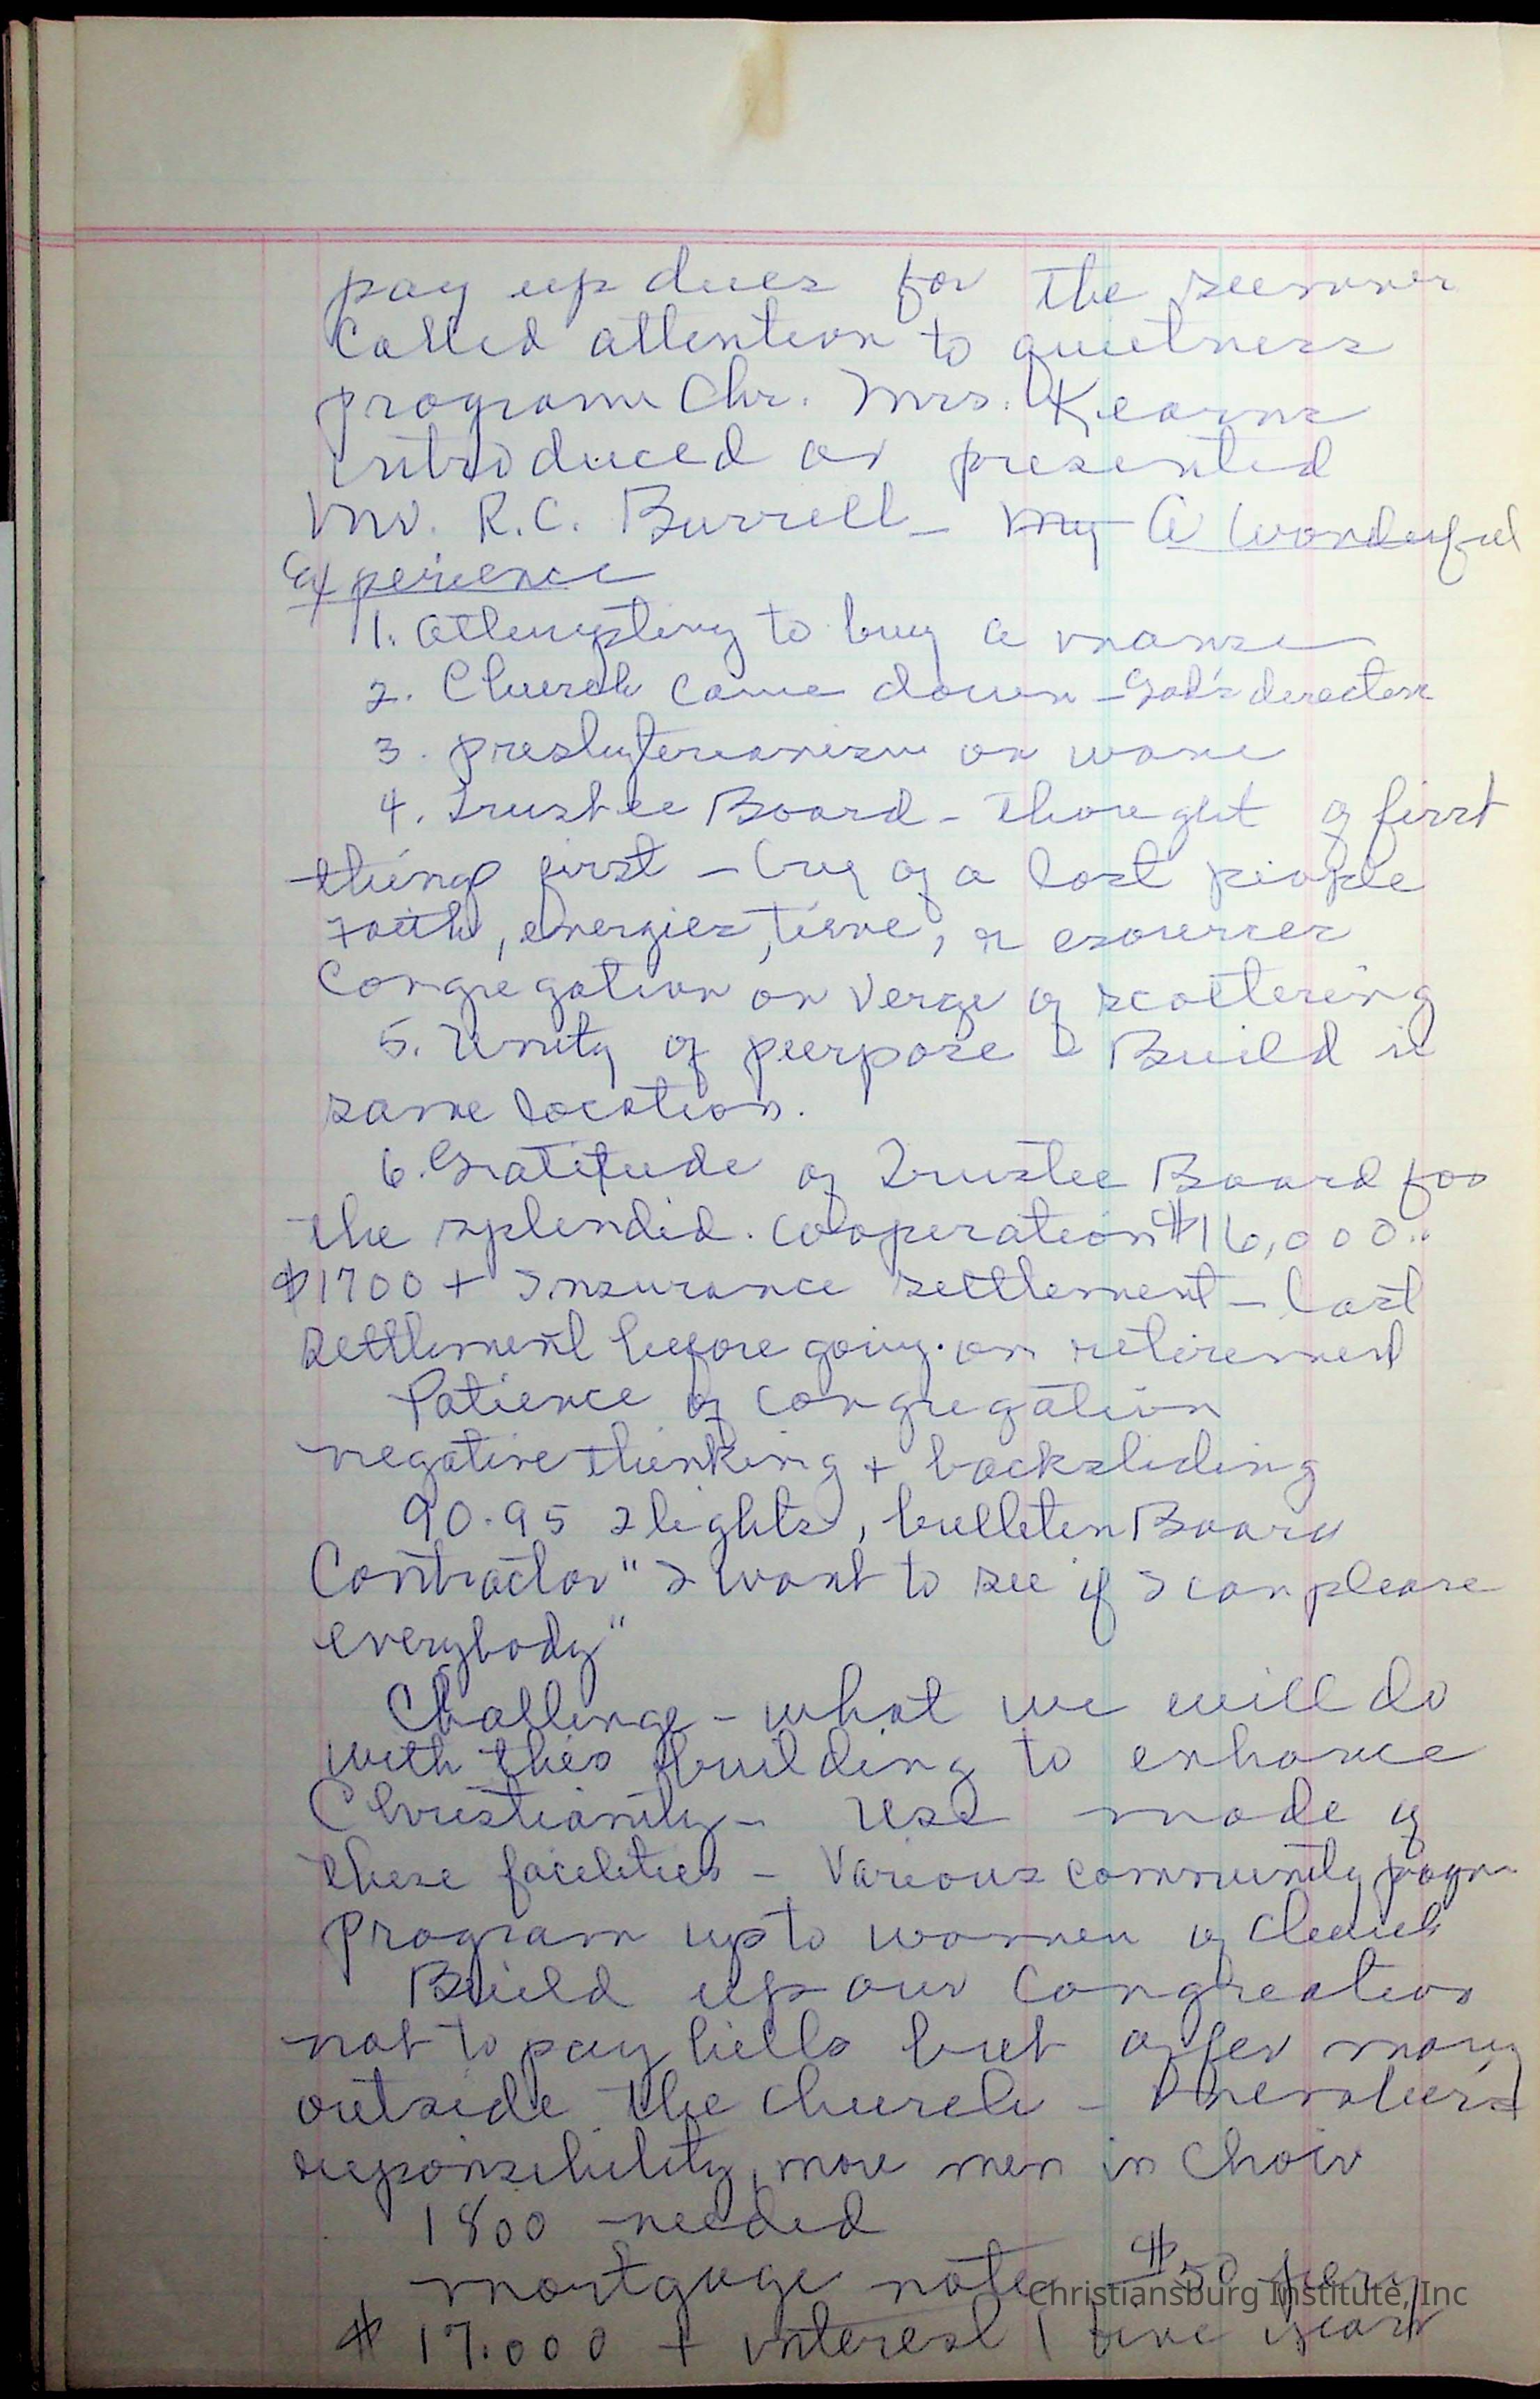 pay up dues for the summer
Called attention to quietness
program Chr. Mrs. Kearns
introduced or presented
Mr. R.C. Burrell - My A Wonderful
Experience
1. Attempting to buy a manse
2. Church came down - God's direction
3. Presbyterianism on wane
4. Trustee Board - thought of first
things first - Cry of a lost people
Faith, energies, time, resources
Congregation on verge of scattering
5. Unity of purpose - Build in
same location.
6. Gratitude of Trustee Board for
the splendid. cooperation $16,000..
$1700 + Insurance settlement - last
settlement before going on retirement
Patience of congregation
negative thinking + backsliding
90.95 2 lights, bulletin Board
Contractor "I want to see if I can please
everybody"
Challenge - what we will do
with this building to enhance
Christianity - Use made of
these facilities - Various community progrm
Program up to women of church
Build up our Congreation
not to pay bills but offer many
outside the church - Members
responsibility, more men in Choir
1800 needed
mortgage note $50 per
$17.000 + interest five years
Christiansburg Institute, Inc